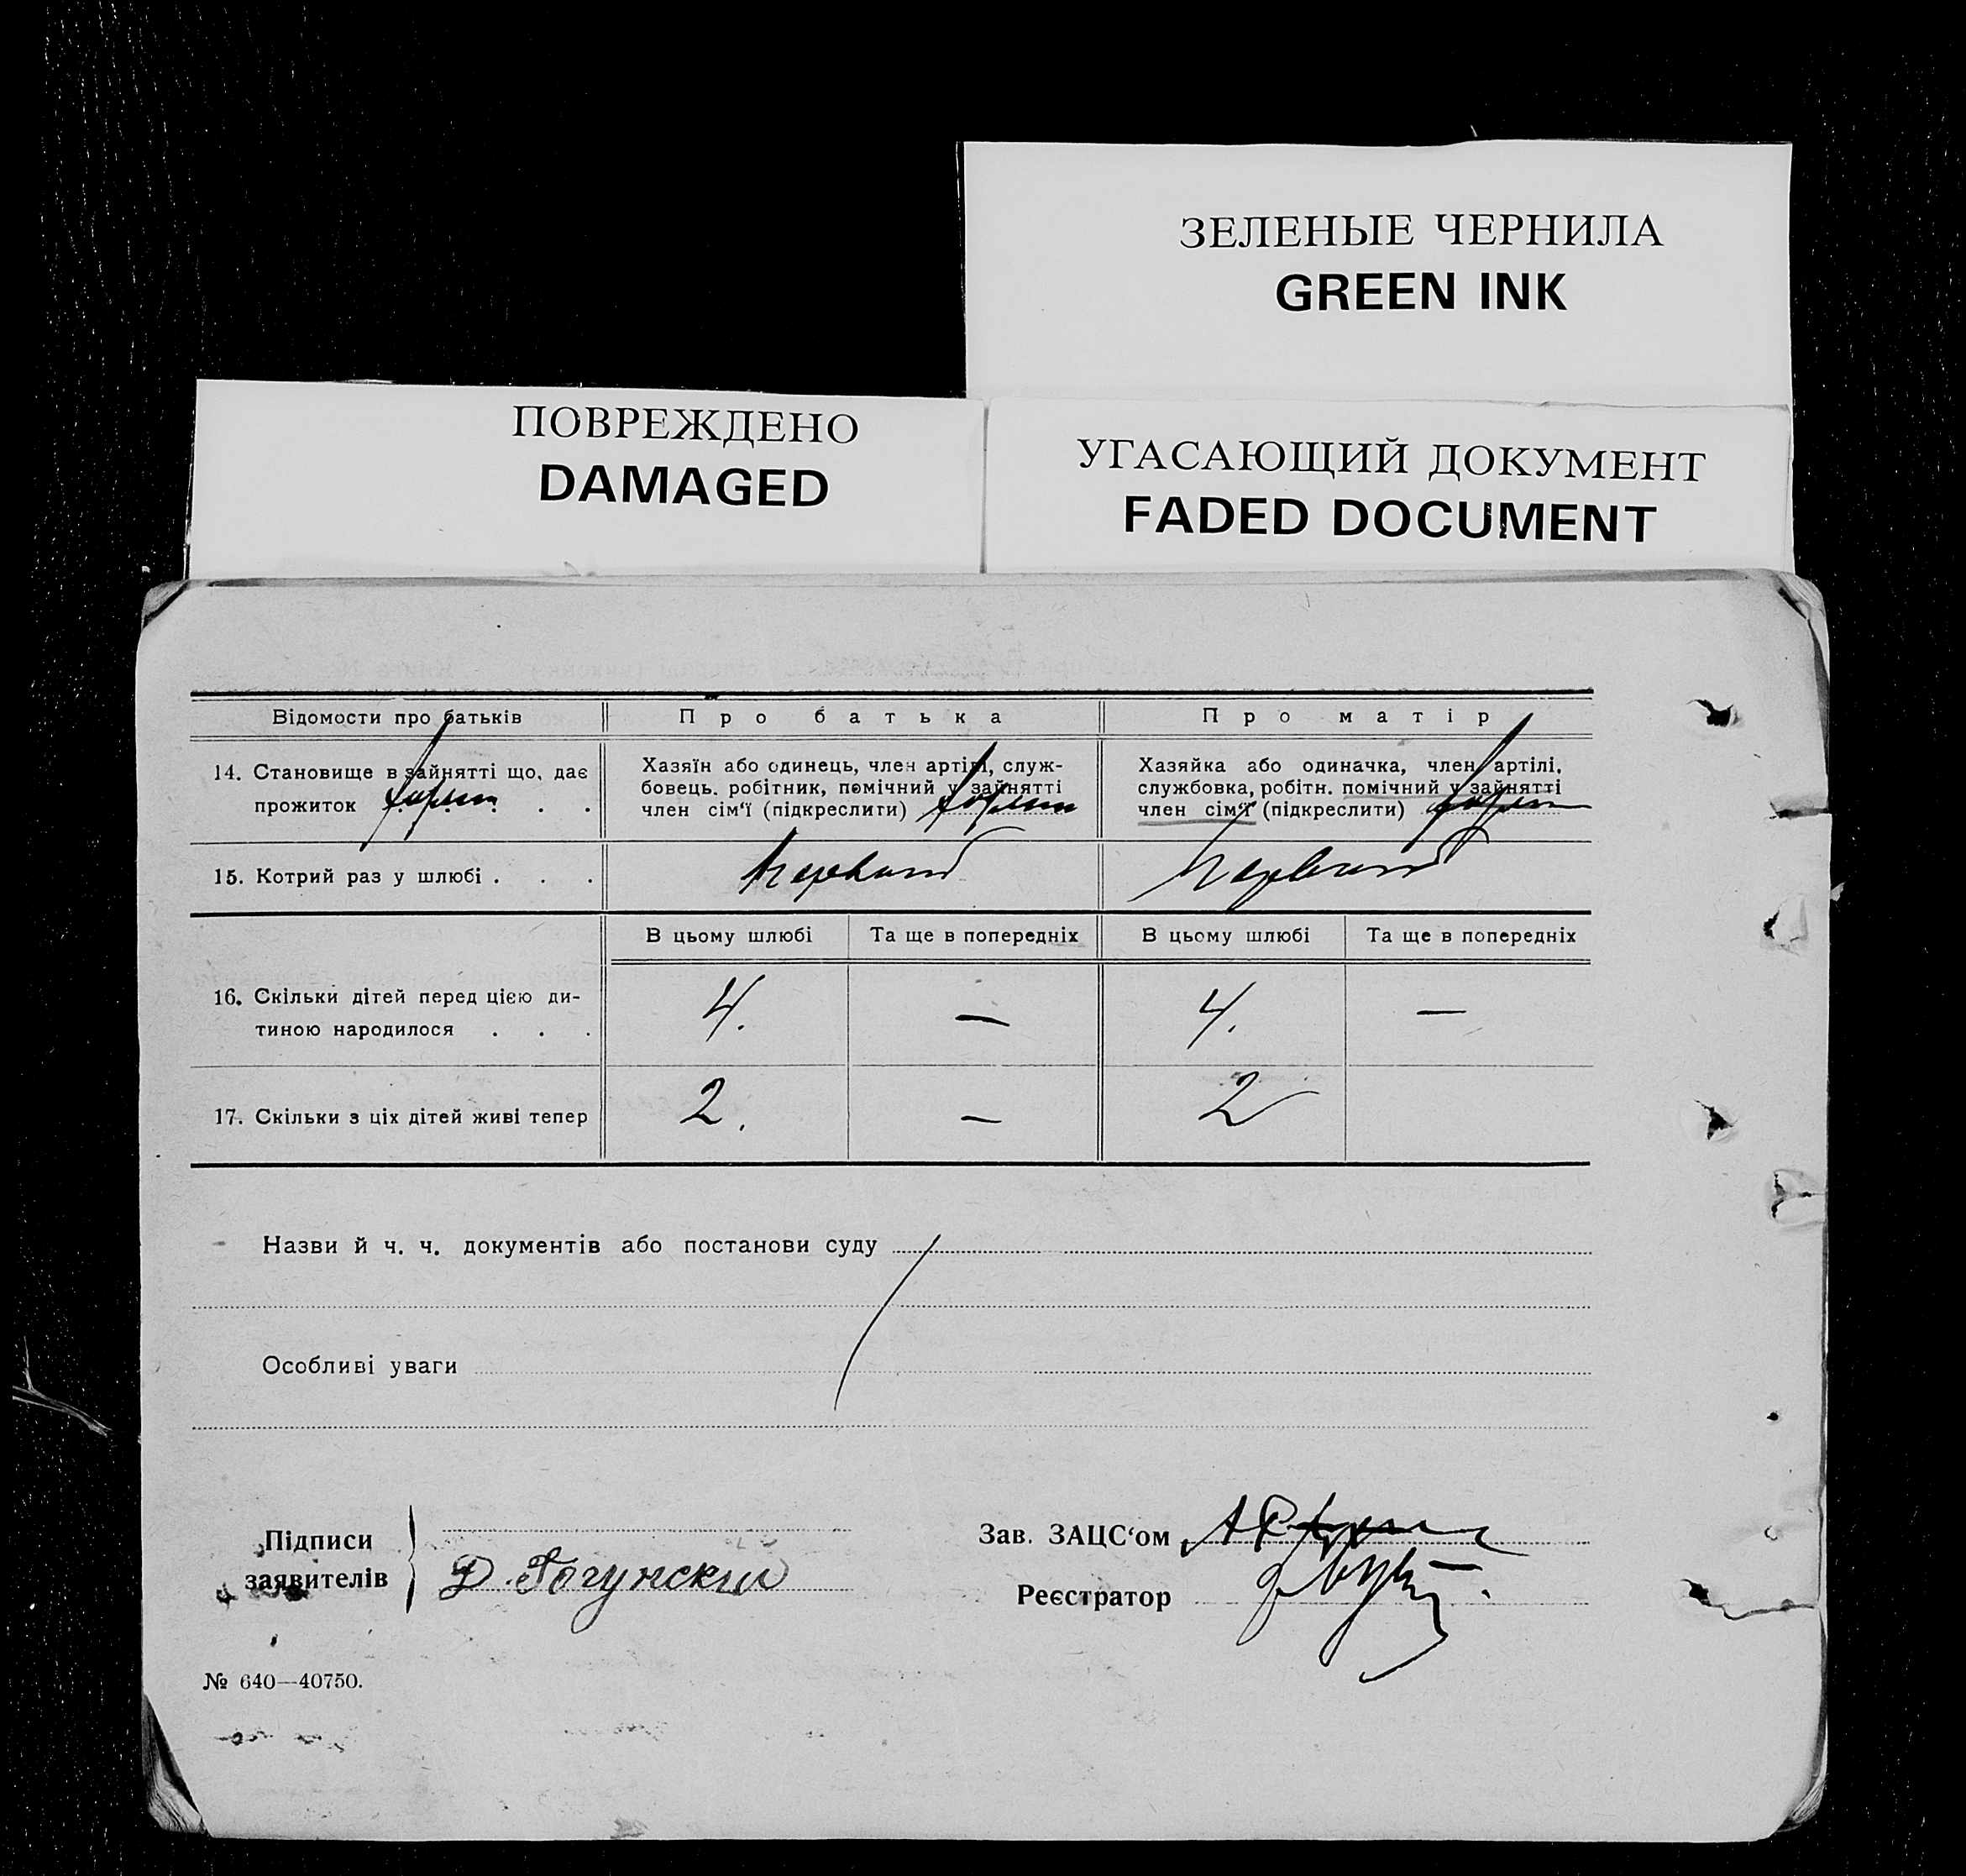 ЗЕЛЕНЫЕ ЧЕРНИЛА
GREEN INK
ПОВРЕЖДЕНО
DAMAGED
УГАСАЮЩИЙ ДОКУМЕНТ
FADED DOCUMENT
Відомости про батьків
Про батька
Про матір
14. Становище в зайнятті що, дає
прожиток . . .
Хазяїн або одинець, член артілі, служ-
бовець. робітник, помічний у зайнятті
член сім'ї (підкреслити)
Хазяйка або одиначка, член артілі,
службовка, робітн. помічний у зайнятті
член сім'ї (підкреслити)
15. Котрий раз у шлюбі . . .
В цьому шлюбі
Та ще в попередніх
В цьому шлюбі
Та ще в попередніх
16. Скільки дітей перед цією ди-
тиною народилося . . .
4.
—
4.
—
17. Скільки з ціх дітей живі тепер
2.
—
2
Назви й ч. ч. документів або постанови суду
Особливі уваги
Підписи
заявителів
Д.
Зав. ЗАЦС'ом
Реєстратор
№ 640—40750.